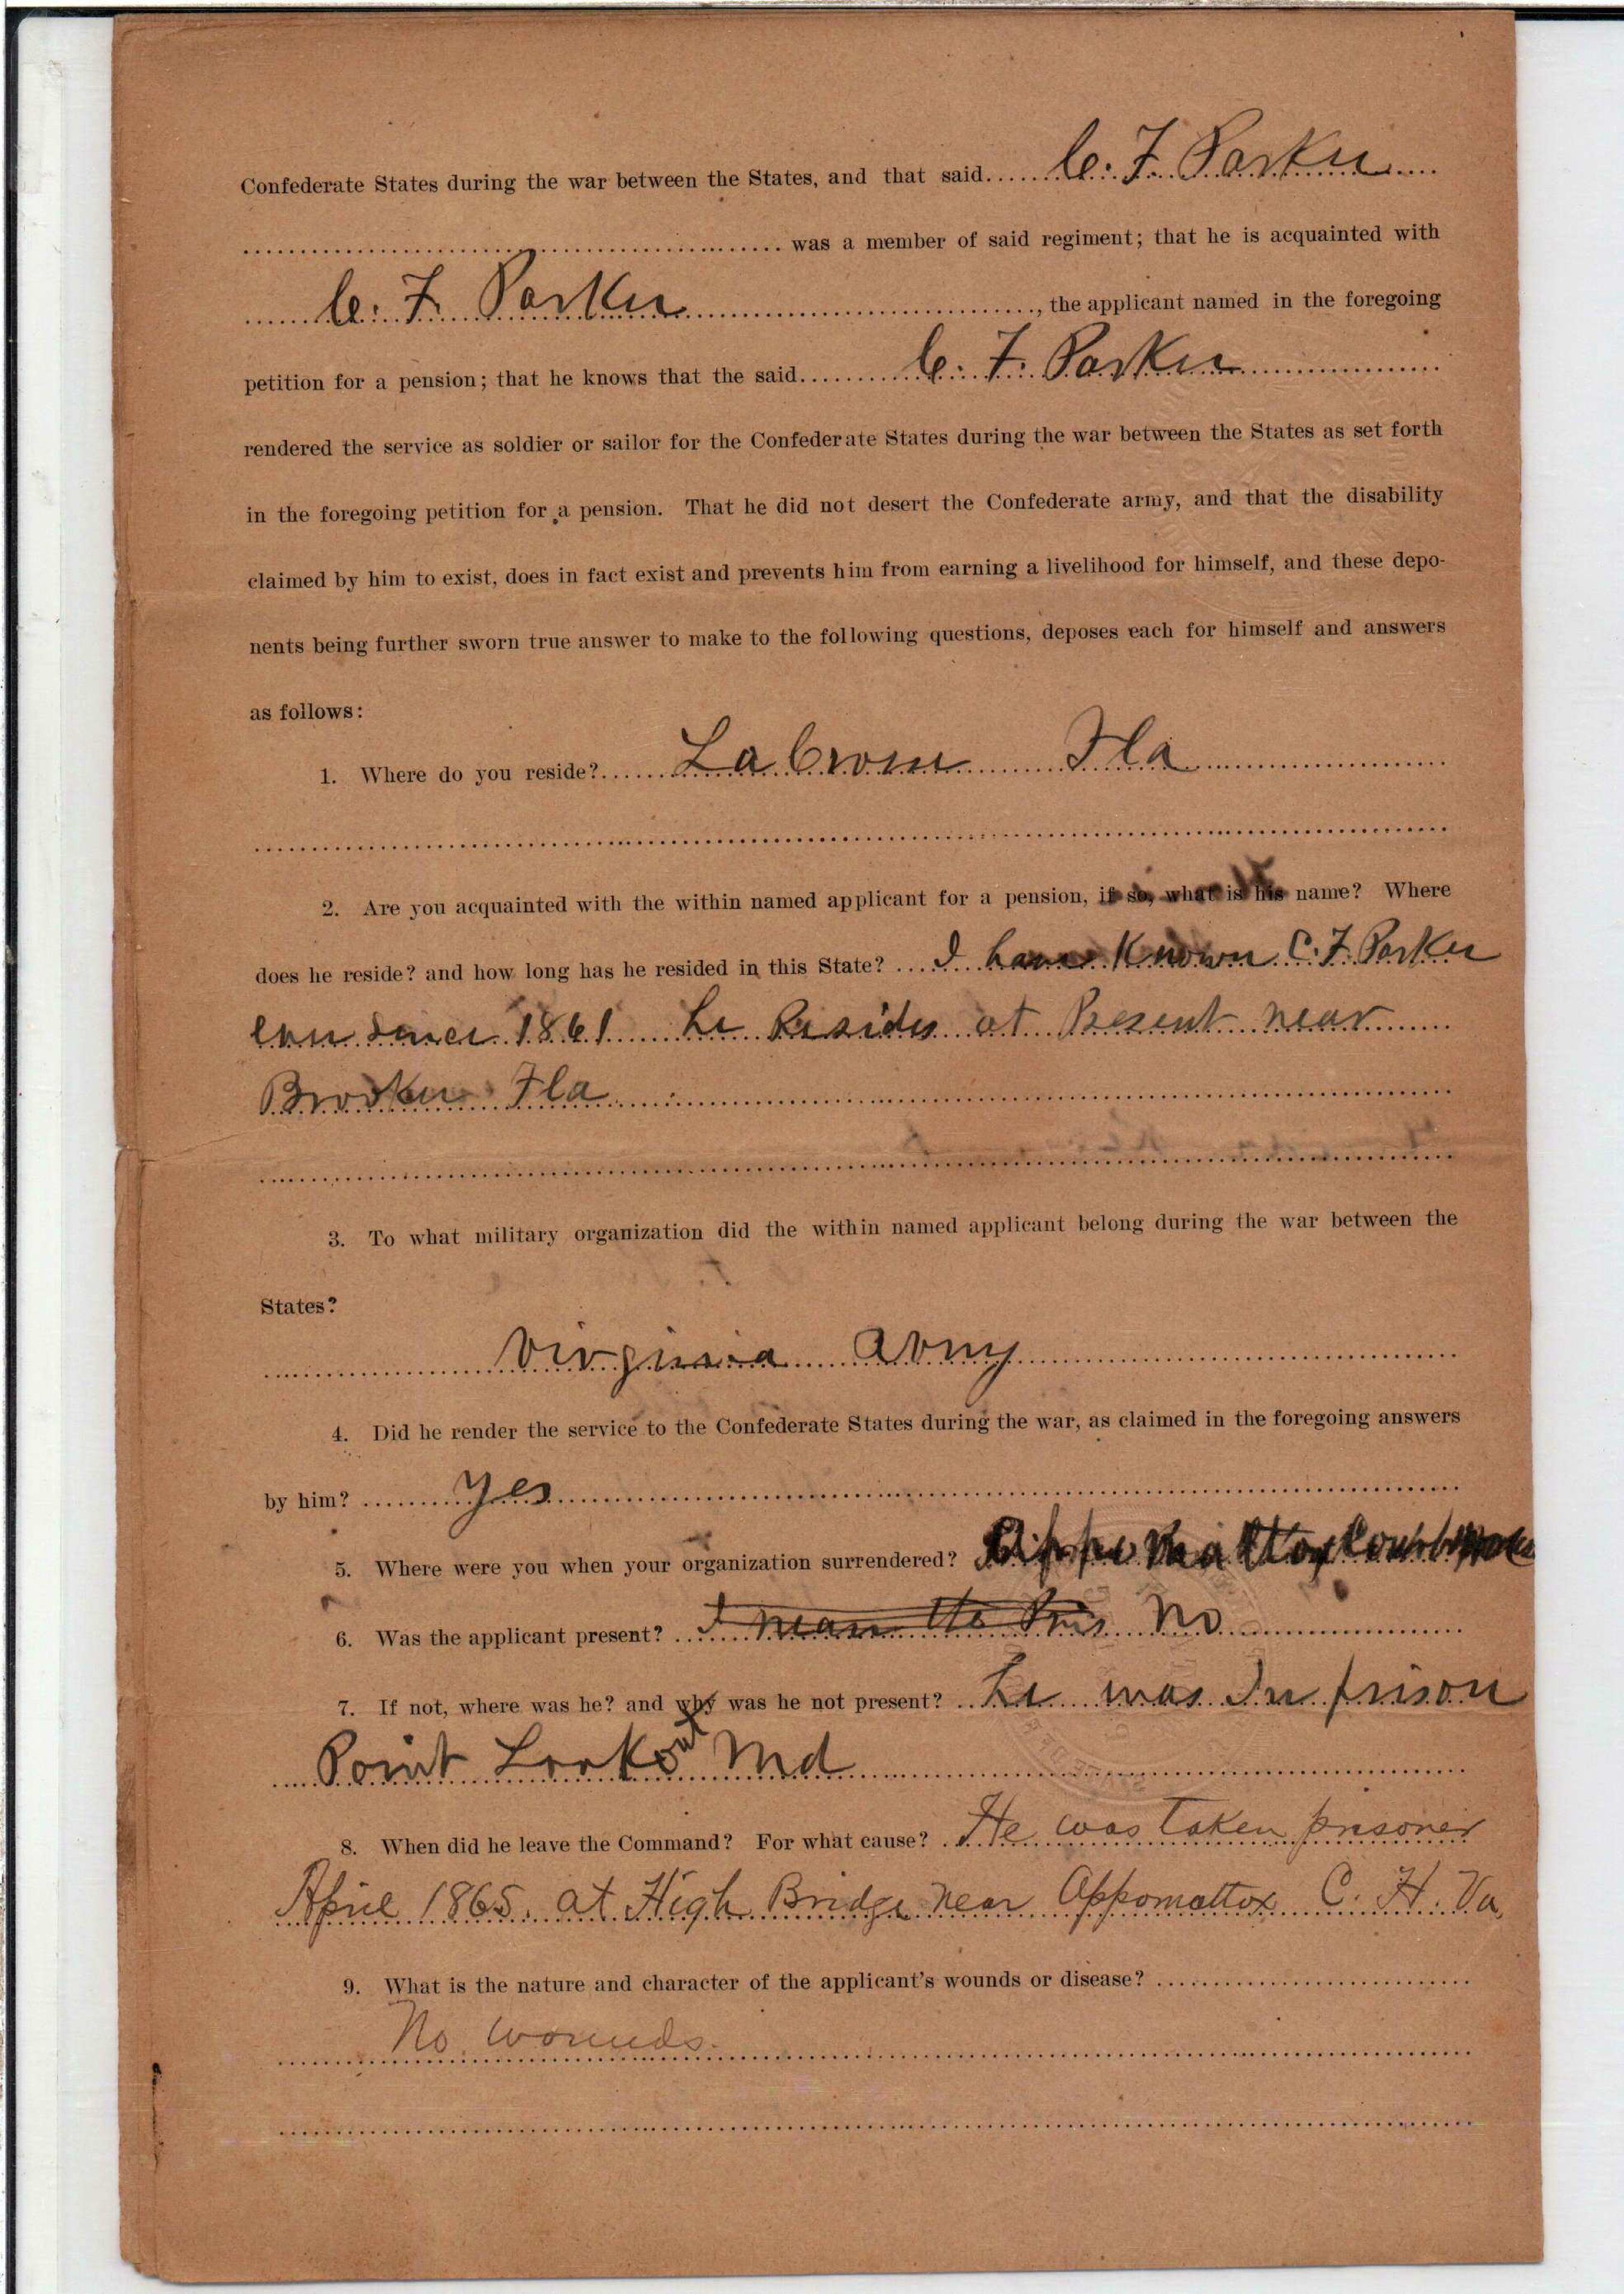 Confederate States during the war between the States, and that said C. F. Parker
was a member of said regiment; that he is acquainted with
C. F. Parker, the applicant named in the foregoing
petition for a pension; that he knows that the said C. F. Parker
rendered the service as soldier or sailor for the Confederate States during the war between the States as set forth
in the foregoing petition for a pension. That he did not desert the Confederate army, and that the disability
claimed by him to exist, does in fact exist and prevents him from earning a livelihood for himself, and these depo-
nents being further sworn true answer to make to the following questions, deposes each for himself and answers
as follows:
1. Where do you reside? La Crosse Fla
2. Are you acquainted with the within named applicant for a pension, if so, what is his name? Where
does he reside? and how long has he resided in this State? I have Known C. F. Parker
ever since 1861 he Resides at Present near
Brooker Fla
3. To what military organization did the within named applicant belong during the war between the
States?
Virginia Army
4. Did he render the service to the Confederate States during the war, as claimed in the foregoing answers
by him? yes
5. Where were you when your organization surrendered? Appomattox Court
6. Was the applicant present? No
7. If not, where was he? and why was he not present? he was In prison
Point Lookout Md
8. When did he leave the Command? For what cause? He was taken prisoner
April 1865. at High Bridge near Appomattox C. H. Va.
9. What is the nature and character of the applicant's wounds or disease?
No wounds.